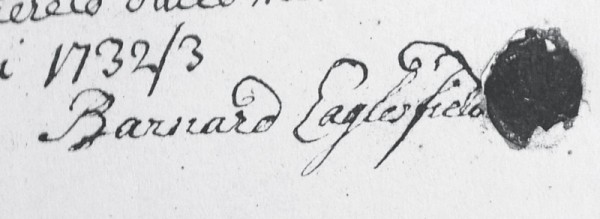 i 1732/3
Barnard Eaglesfield